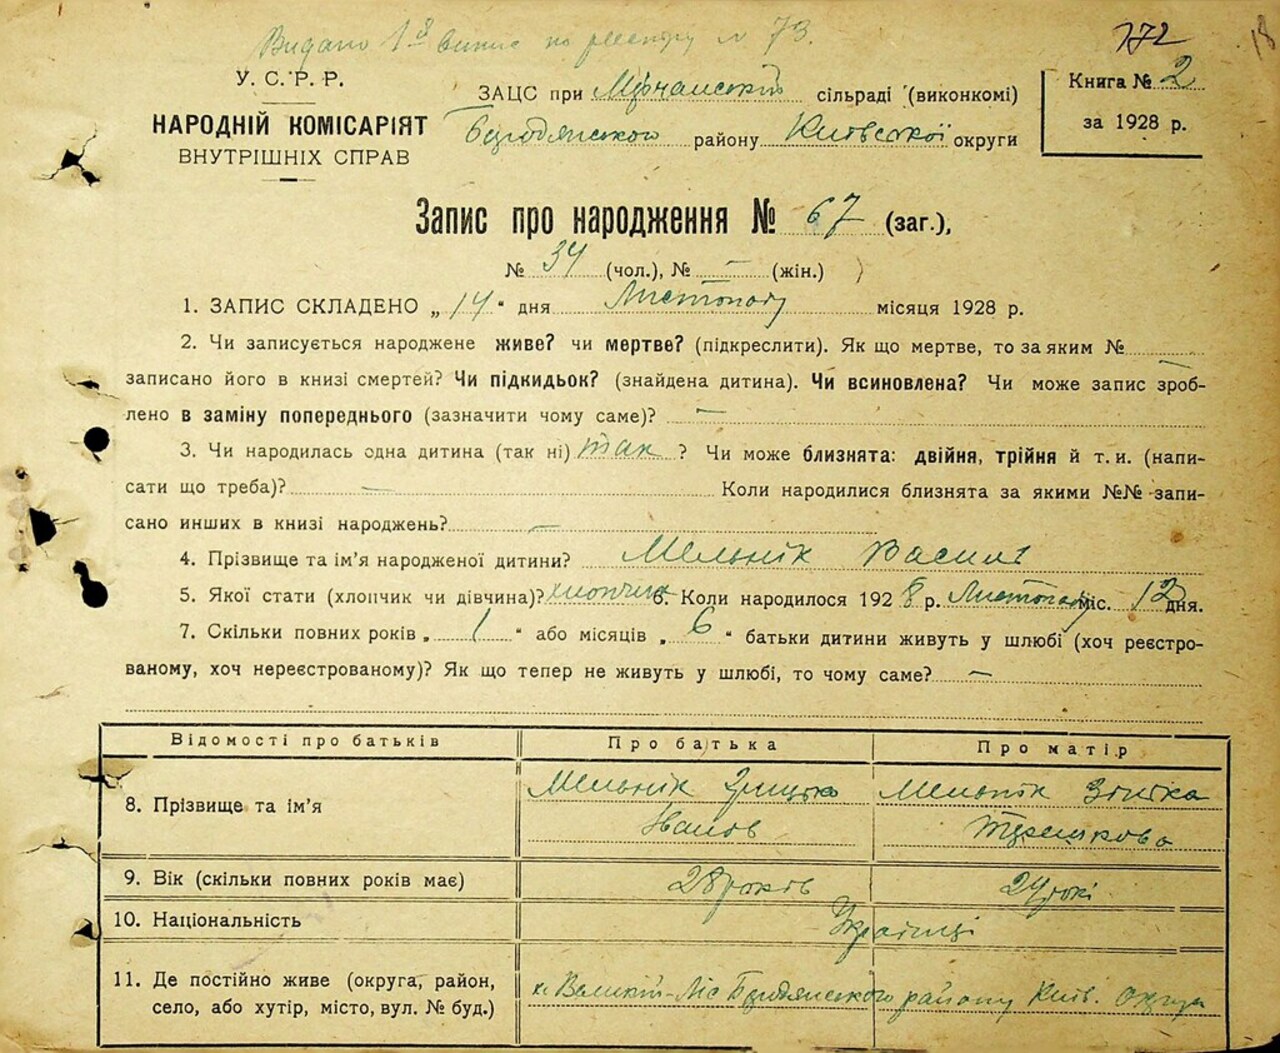 Видано 1й випис по реєстру № 73.
172
18
У. С. Р. Р.
НАРОДНІЙ КОМІСАРІЯТ
ВНУТРІШНІХ СПРАВ
ЗАЦС при Мірчанській сільраді (виконкомі)
Бородянського району Київської округи
Книга № 2
за 1928 р.
Запис про народження № 67 (заг.),
№ 34 (чол.), № — (жін.)
1. ЗАПИС СКЛАДЕНО „ 14 “ дня Листопаду місяця 1928 р.
2. Чи записується народжене живе? чи мертве? (підкреслити). Як що мертве, то за яким №
записано його в книзі смертей? Чи підкидьок? (знайдена дитина). Чи всиновлена? Чи може запис зроб-
лено в заміну попереднього (зазначити чому саме)? —
3. Чи народилась одна дитина (так ні) так ? Чи може близнята: двійня, трійня й т. и. (напи-
сати що треба)? — Коли народилися близнята за якими №№ запи-
сано инших в книзі народжень? —
4. Прізвище та ім’я народженої дитини? Мельнік Василь
5. Якої стати (хлопчик чи дівчина)? хлопчик 6. Коли народилося 1928 р. Листопаду міс. 12 дня.
7. Скільки повних років „ 1 “ або місяців „ 6 “ батьки дитини живуть у шлюбі (хоч реєстро-
ваному, хоч нереєстрованому)? Як що тепер не живуть у шлюбі, то чому саме? —
Відомості про батьків Про батька Про матір
8. Прізвище та ім’я Мельнік Грицько Мельнік
Іванов
9. Вік (скільки повних років має) 28 років 24 рокі
10. Національність Українці
11. Де постійно живе (округа, район, х. Великій-Ліс Бородянського району Київ. Округи
село, або хутір, місто, вул. № буд.)